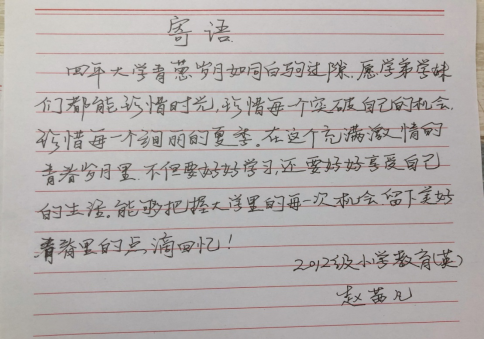 寄语
四年大学青葱岁月如同白驹过隙,愿学弟学妹
们都能珍惜时光,珍惜每一个突破自己的机会,
珍惜每一个绚丽的夏季。在这个充满激情的
青春岁月里,不但要好好学习,还要好好享受自己
的生活,能够把握大学里的每一次机会,留下美好
青春里的点滴回忆!
2012级小学教育(英)
赵茜凡